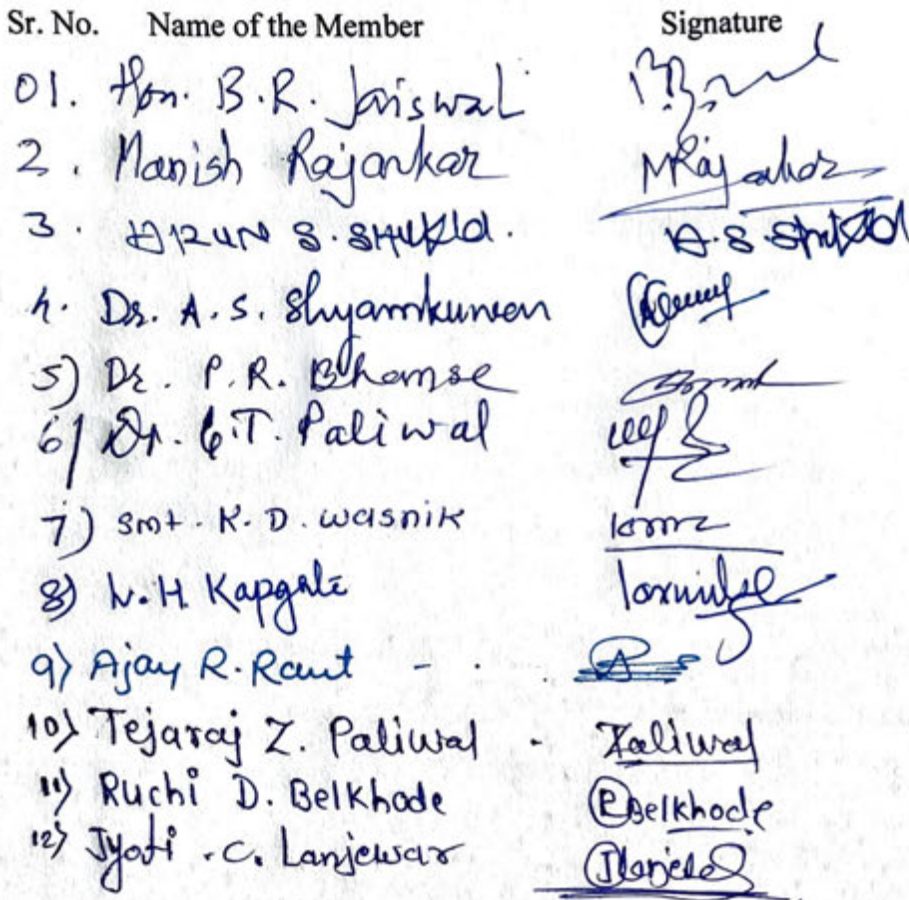 Sr. No. Name of the Member Signature
01. Hon. B.R. Jaiswal
2. Manish Rajankar MRajankar
3. ARUN S. SHUKLA. A.S. Shukla
4. Dr. A.S. Shyamkuwar
5) Dr. P.R. Bhamse
6) Dr. G.T. Paliwal
7) Smt. K.D. wasnik
8) N.H. Kapgate
9) Ajay R. Raut - .
10) Tejaraj Z. Paliwal - Paliwal
11) Ruchi D. Belkhode RBelkhode
12) Jyoti .C. Lanjewar